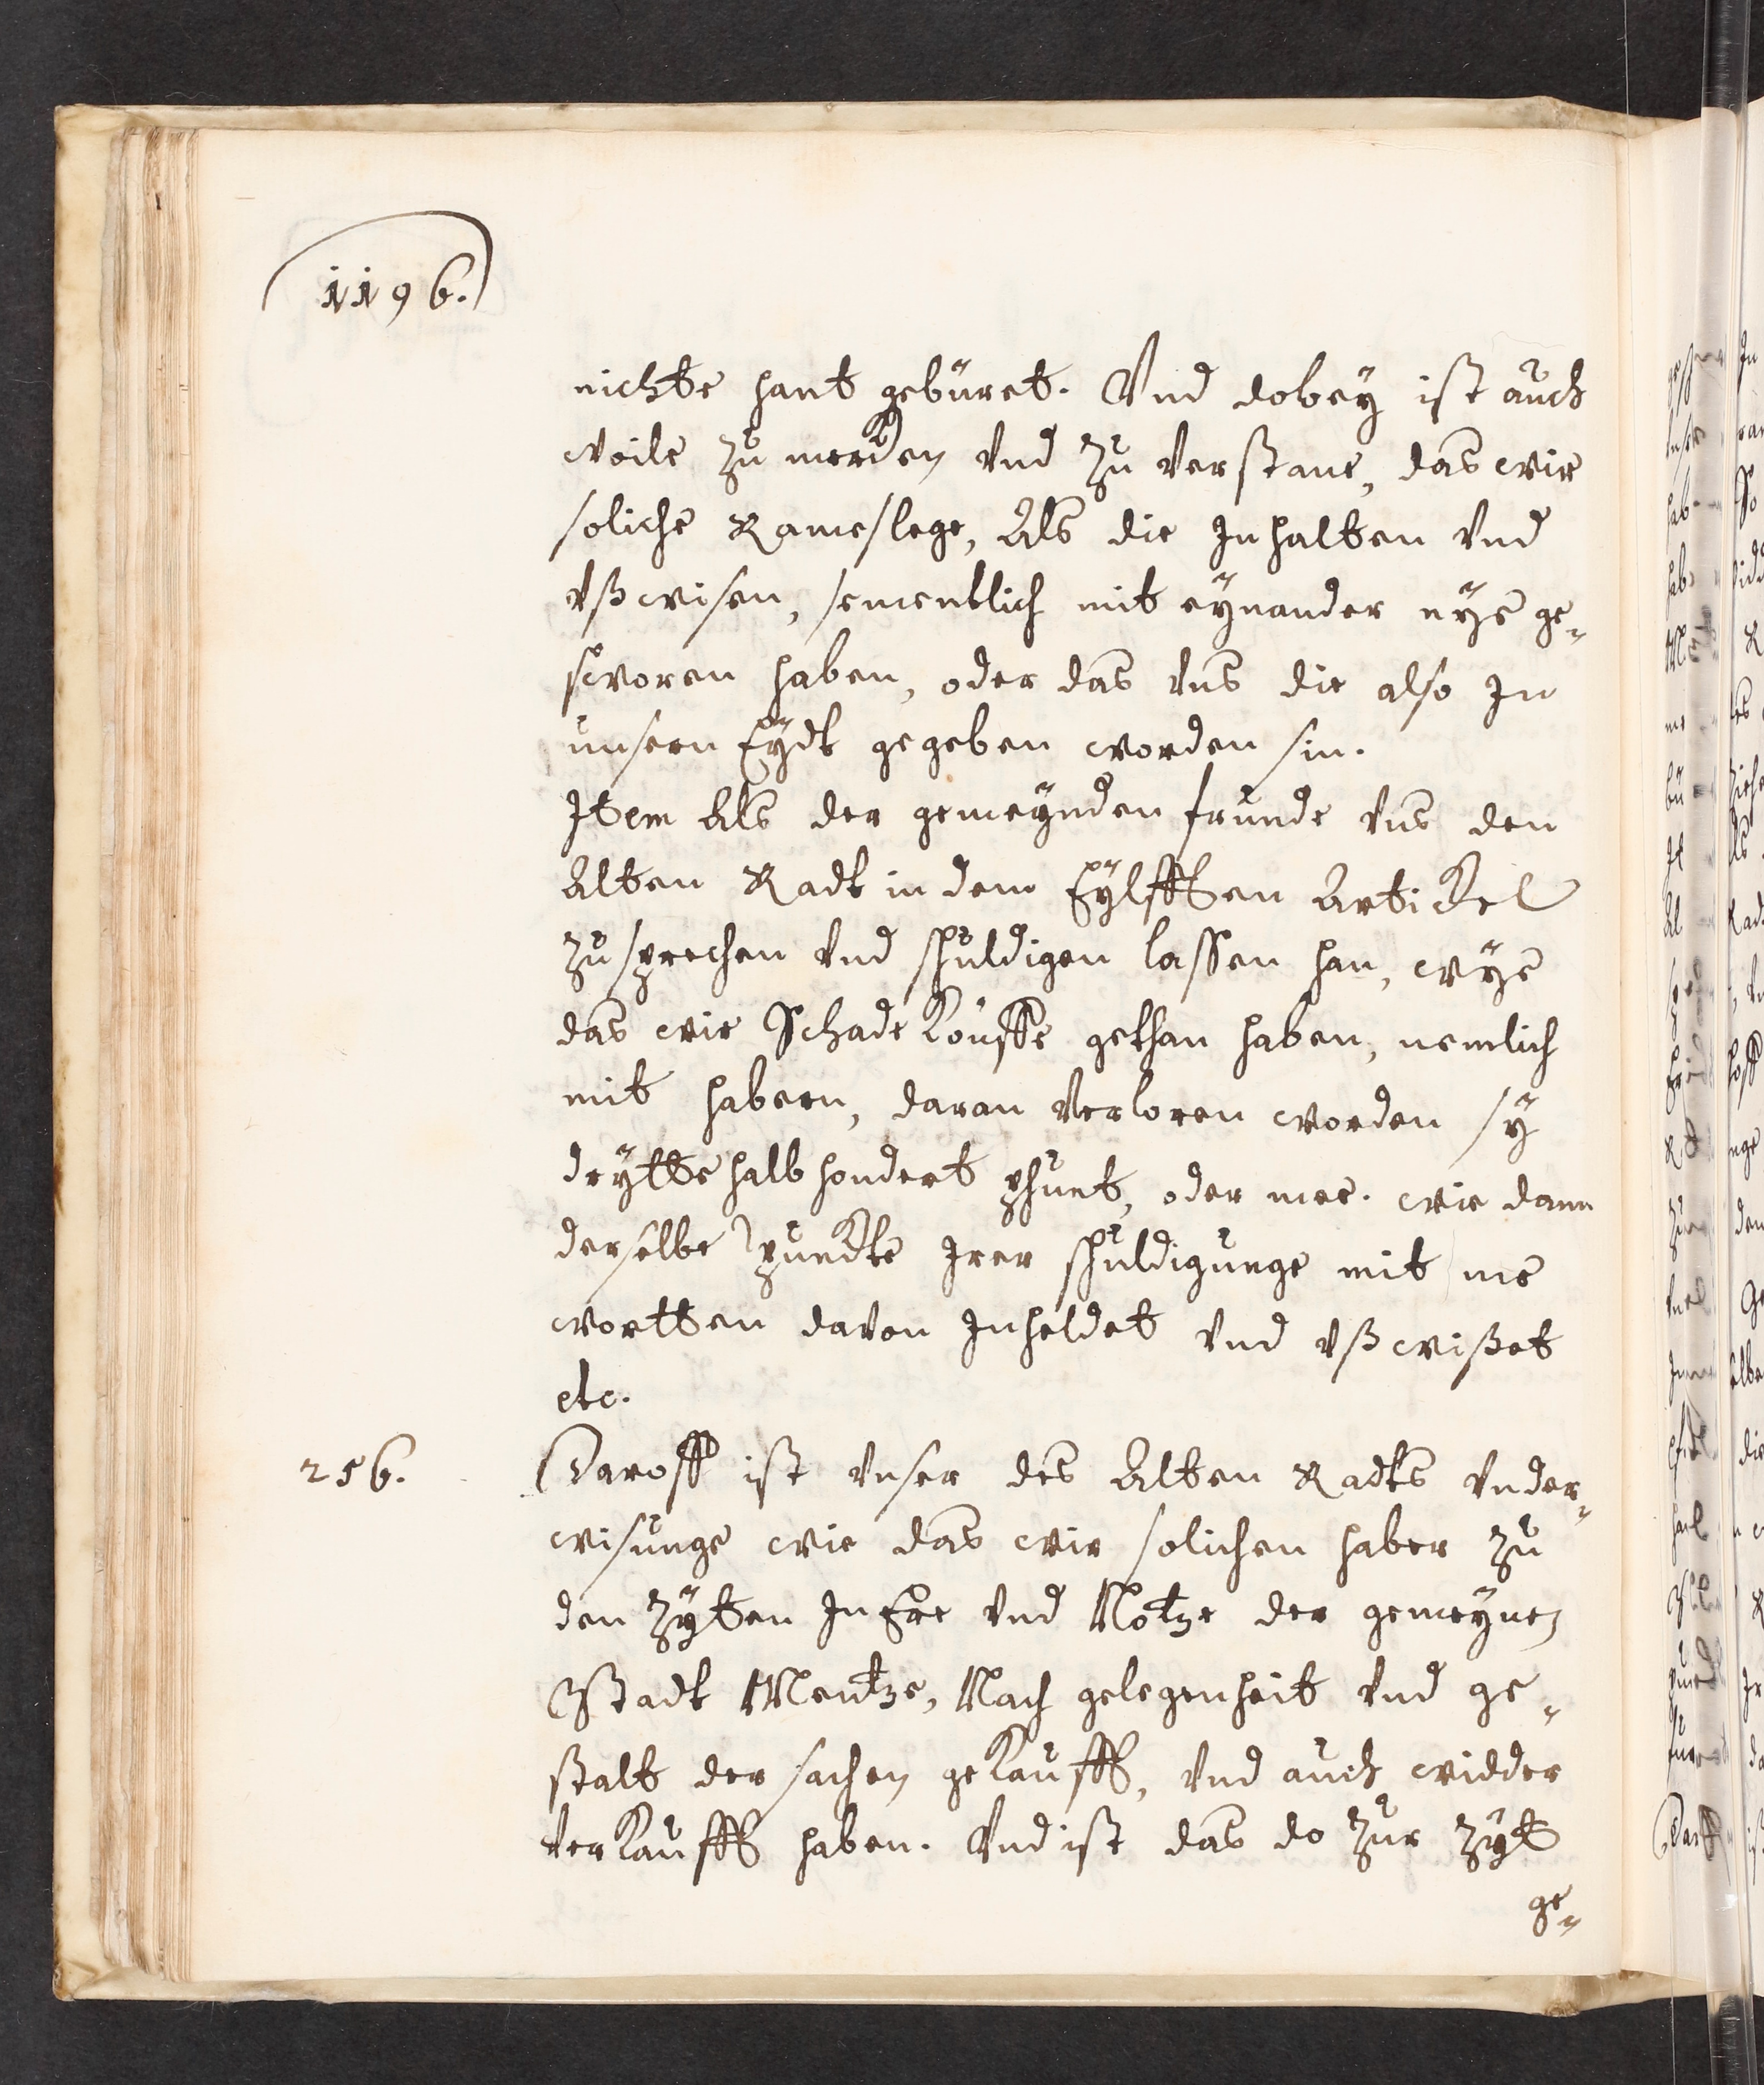 1196.
nichte hant gebüret. Vnd dobey ist auch
woile zu mercken vnd zu verstane, das wir
soliche Rameslege, Als die Inhalten vnd
vßwisen, sementlich mit eynander nÿe ge„
sworen haben, oder das vns die also In
unsern Eÿdt gegeben worden sin.
Item Als der gemeÿnden frunde vns den
Alten Radt in dem Eÿlfften Artickel
zusprechen vnd schuldigen lassen han, wÿe
das wir Schade Köuffe gethan haben, nemlich
mit habern, daran verloren worden sÿ
drÿtte halb hondert phunt, oder mee. wie dann
derselbe punckte Irer schuldigunge mit me
wortten davon Inheldet vnd vßwißet
etc.
256.
Daroff ist vnser des Alten Radts vnder„
wisunge wie das wir solichen haber zu
den Zÿtten In Ere vnd Notze der gemeÿnen
Stadt Mentze, Nach gelegenheit vnd ge„
stalt der sachen gekaufft, vnd auch widder
verkaufft haben. Vnd ist das do zur Zÿt
ge„